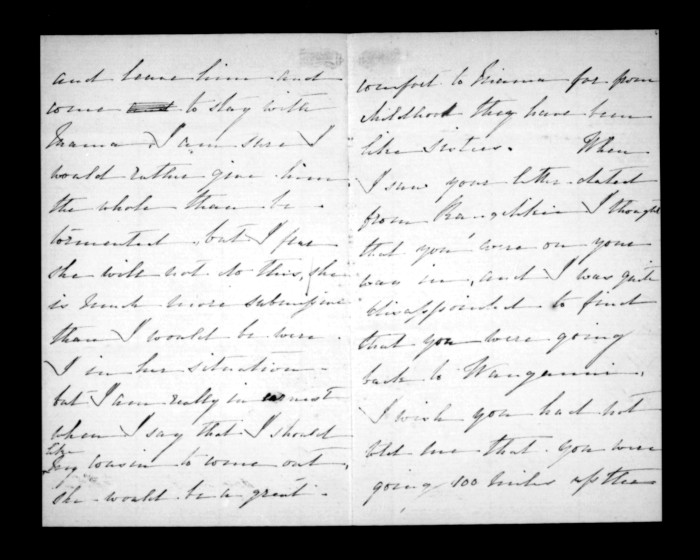 and leave him and
come to stay with
Mama. I am sure I
would rather give him
the whole than be
tormented, but I fear
she will not do this, she
is much more submissive
than I would be were
I in her situation -
but I am really in earnest
when I say that I should
like
my cousin to come out,
she would be a great
comfort to Mama for from
childhood they have been
like sisters. When
I saw your letter dated
from Rangitikei I thought
that you were on your
way in, and I was quite
disappointed to find
that you were going
back to Wanganui.
I wish you had not
told me that you were
going 100 miles up the